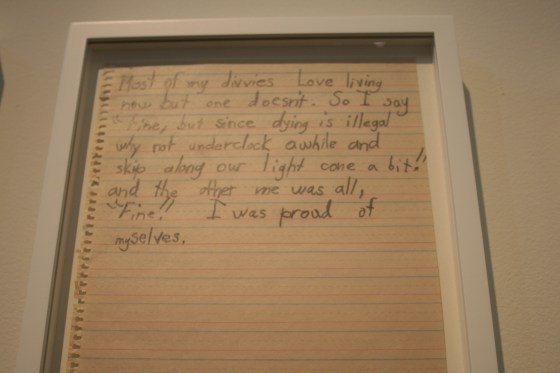 Most of my divvies Love living
now but one doesn't. So I say
"Fine, but since dying is illegal
why not underclock awhile and
skip along our light cone a bit!"
and the other me was all,
"Fine!" I was proud of
myselves.